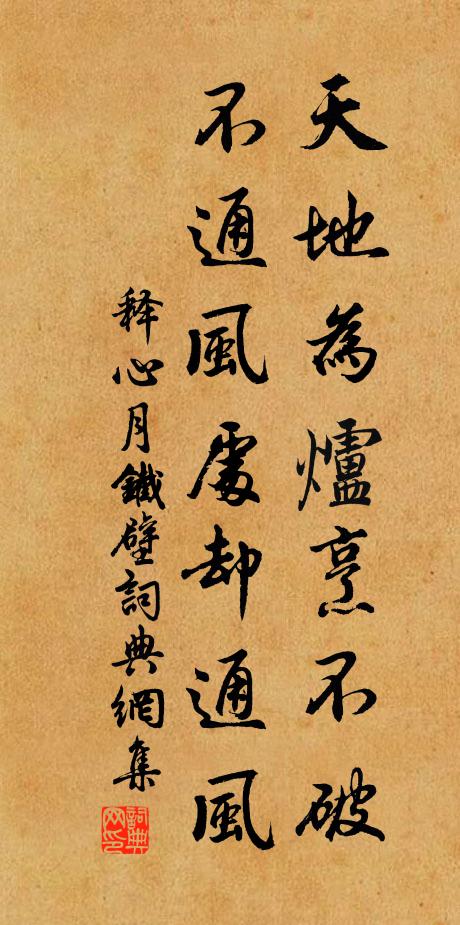 天地為爐烹不破
不通風處却通風
释心月鐵壁詞典網集
詞典网印